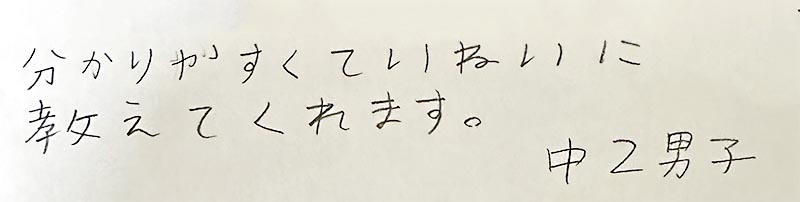 分かりやすくていねいに
教えてくれます。
中2男子